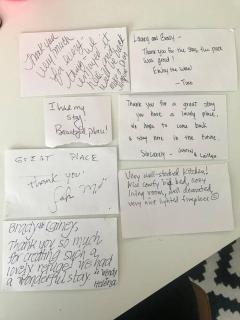 Thank you
very much
for every
Lainey and Brady -
Thank you for the stay, the place
was great!
Enjoy the wine!
I loved my
stay!
Beautiful place!
Thank you for a great stay
you have a lovely place,
We hope to come back
& stay here in the future.
Sincerely -
GREAT PLACE
thank you!
Very well-stocked kitchen!
Nice comfy big bed, cozy
living room, well decorated,
very nice lighted fireplace ☺
Brady & Lainey,
Thank you so much
for creating such a
lovely refuge. We had
a wonderful stay.